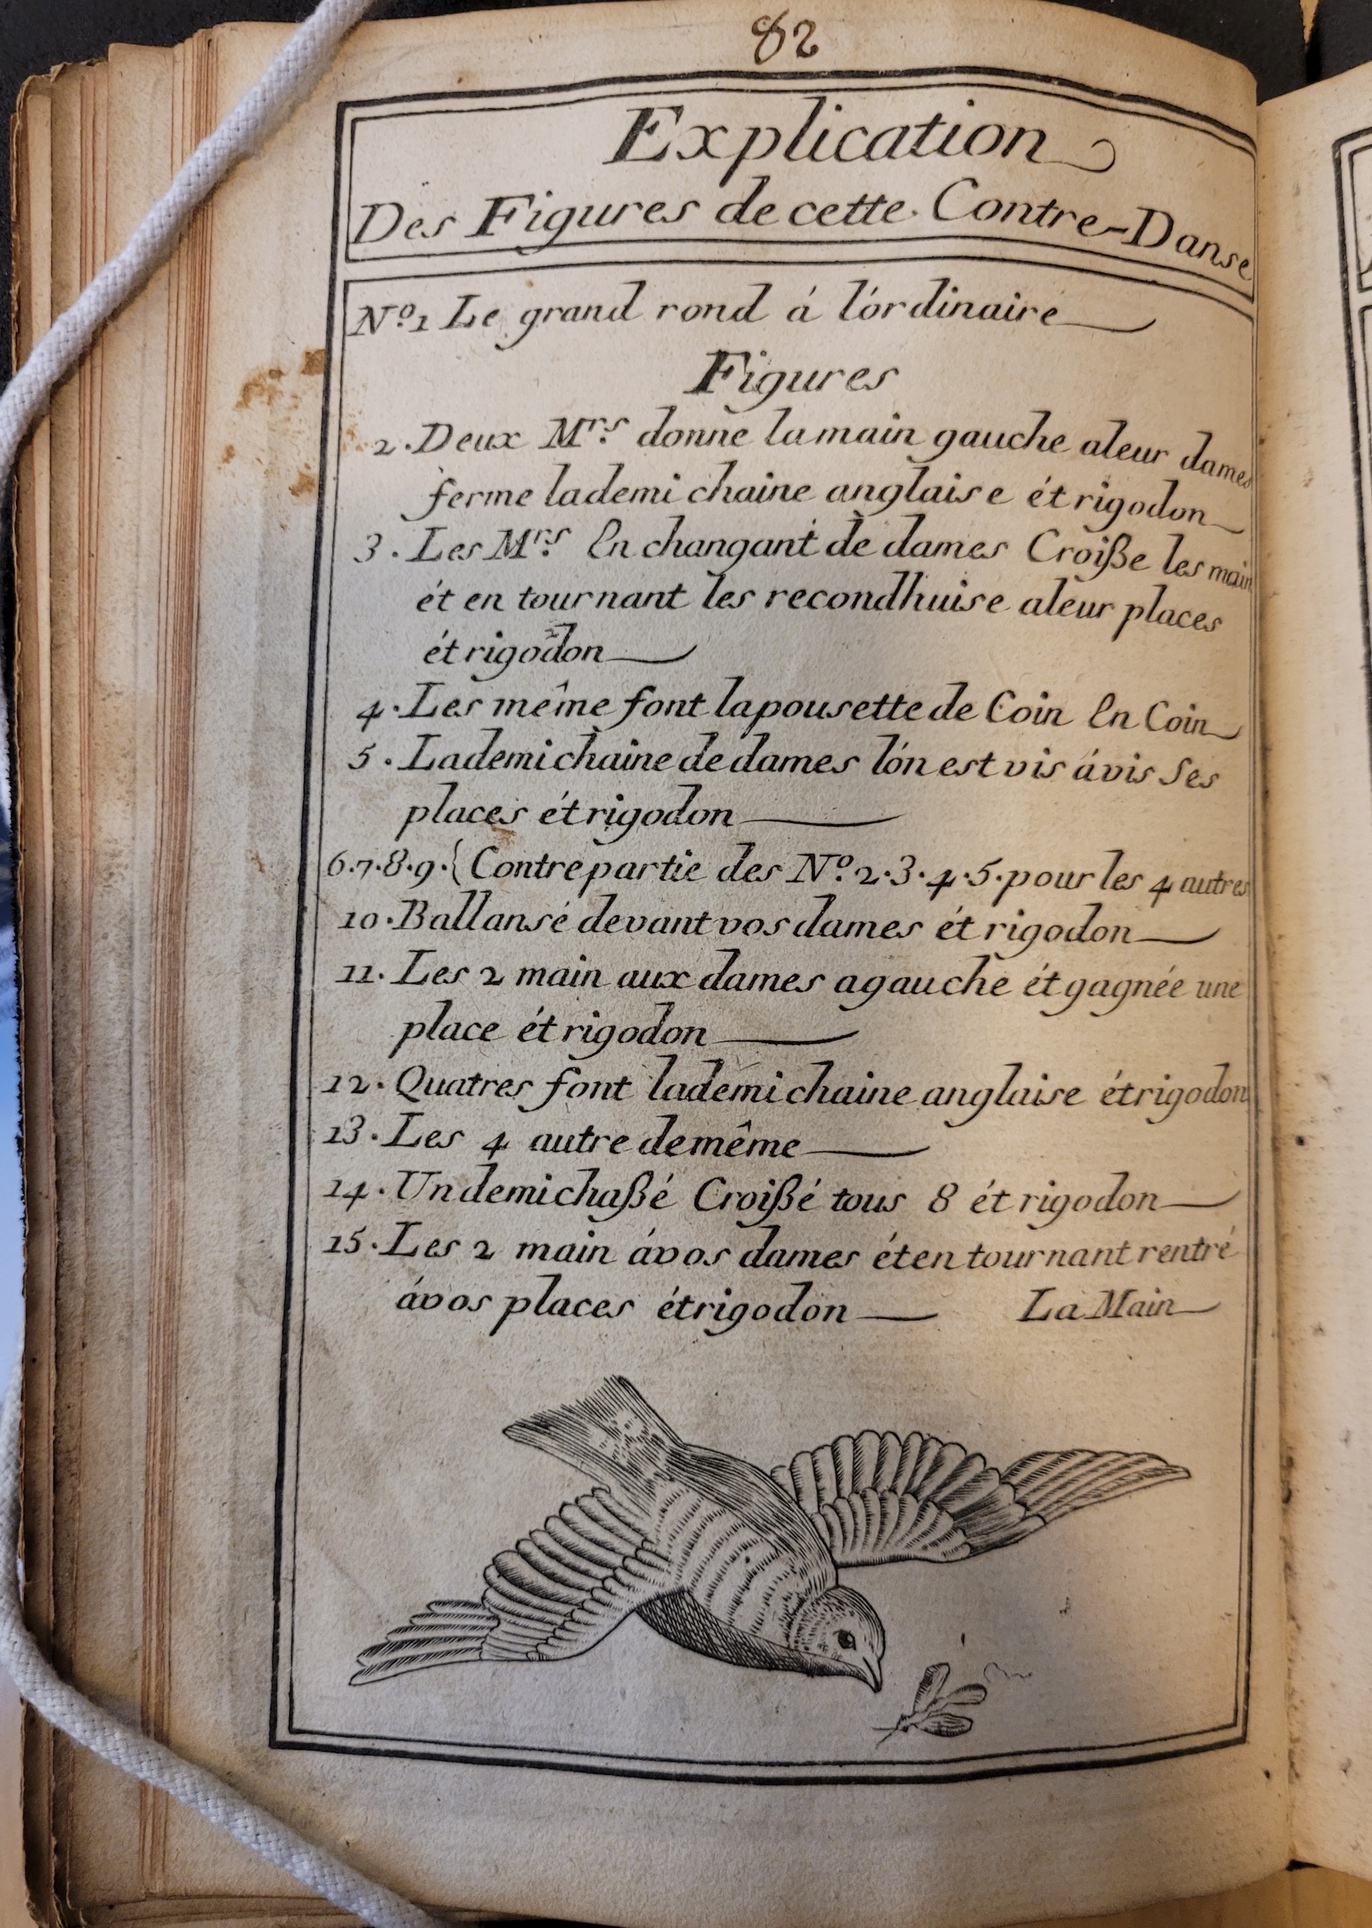 82
Explication
Des Figures de cette Contre-Danse
Nº.1 Le grand rond á l'ordinaire
Figures
2. Deux Mrs. donne la main gauche aleur dames
ferme lademi chaine anglaise ét rigodon
3. Les Mrs. En changant de dames Croiße les main
ét en tournant les recondhuise aleur places
ét rigodon
4. Les même font lapousette de Coin En Coin
5. Lademi chaine de dames l'ón est vis ávis Ses
places ét rigodon
6.7.8.9.{ Contrepartie des Nº. 2.3.4.5. pour les 4 autres
10. Ballansé devant vos dames ét rigodon
11. Les 2 main aux dames agauche ét gagnée une
place ét rigodon
12. Quatres font lademi chaine anglaise ét rigodon
13. Les 4 autre demême
14. Un demi chaßé Croißé tous 8 ét rigodon
15. Les 2 main ávos dames ét en tournant rentré
ávos places ét rigodon La Main